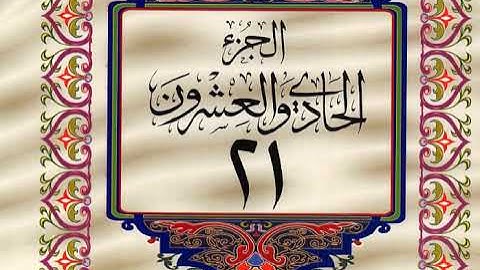 الجزء
الحادي والعشرون
٢١